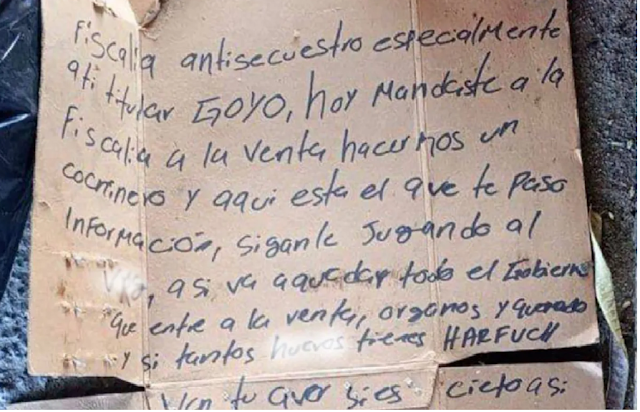 Fiscalia antisecuestro especialmente
ati titular GOYO, hoy Mandaste a la
Fiscalia a la Venta hacernos un
cochinero y aqui esta el que te Paso
INFORMACIÓN, siganle Jugando al
Vivo, asi va aquedar todo el Gobierno
que entre a la venta, organos y
y si tantos huevos tienes HARFUCH
Ven tu aver si es cieto asi